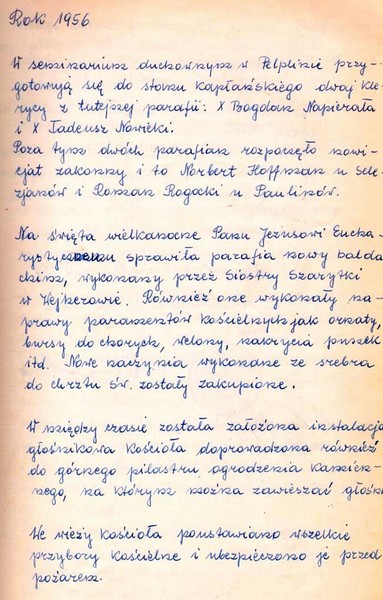 Rok 1956
W seminarium duchownym w Pelplinie przy-
gotowują się do stanu kapłańskiego dwaj kle
rycy z tutejszej parafii: X Bogdan Napierała
i X Tadeusz Nowicki.
Poza tym dwóch parafian rozpoczęło nowi-
cjat zakonny i to Norbert Hoffman u Sale
zjanów i Roman Rogacki u Paulinów.
Na święta wielkanocne Panu Jezusowi Eucha-
rystycznemu sprawiła parafia nowy balda
chim, wykonany przez Siostry Szarytki
w Wejherowie. Również one wykonały na-
prawy paramentów kościelnych jak ornaty,
bursy do chorych, welony, nakrycia puszek
itd. Nowe naczynia wykonane ze srebra
do chrztu św. zostały zakupione.
W między czasie została założona instalacja
głośnikowa kościoła doprowadzona również
do górnego pilastru ogrodzenia kamien-
nego, na którym można zawieszać głośn
We wieży kościoła poustawiano wszelkie
przybory kościelne i ubezpieczono je przed
pożarem.